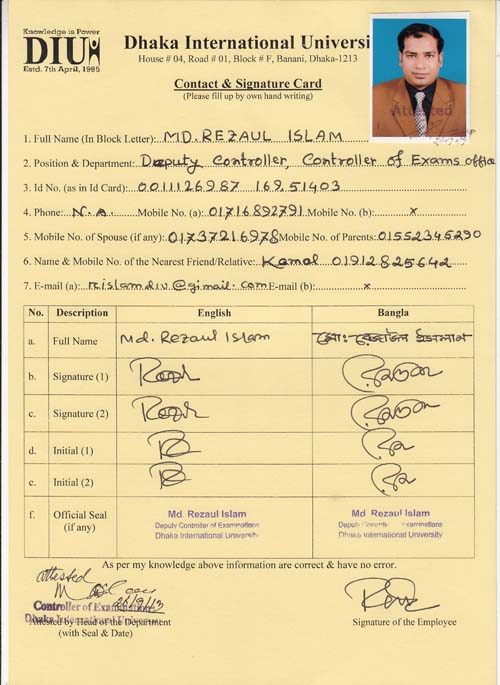 Knowledge is Power
DIU
Estd. 7th April, 1995
Dhaka International Universi
House # 04, Road # 01, Block # F, Banani, Dhaka-1213
Contact & Signature Card
(Please fill up by own hand writing)
Attested
1. Full Name (In Block Letter): MD. REZAUL ISLAM
2. Position & Department: Deputy Controller, Controller of Exams office
3. Id No. (as in Id Card): 0011126987 169 51403
4. Phone: N.A. Mobile No. (a): 01716892791 Mobile No. (b): x
5. Mobile No. of Spouse (if any): 01737216978 Mobile No. of Parents: 01552345290
6. Name & Mobile No. of the Nearest Friend/Relative: Kamal 01912825642
7. E-mail (a): rislamdiv@gimail.com E-mail (b): x
No. Description English Bangla
a. Full Name Md. Rezaul Islam মোঃ রেজাউল ইসলাম
b. Signature (1)
c. Signature (2)
d. Initial (1)
e. Initial (2)
f. Official Seal (if any) Md. Rezaul Islam Md. Rezaul Islam
Deputy Controller of Examinations Deputy Controller of Examinations
Dhaka International University Dhaka International University
As per my knowledge above information are correct & have no error.
attested
26/9/13
Controller of Examinations
Dhaka International University
Attested by Head of the Department
(with Seal & Date)
Signature of the Employee